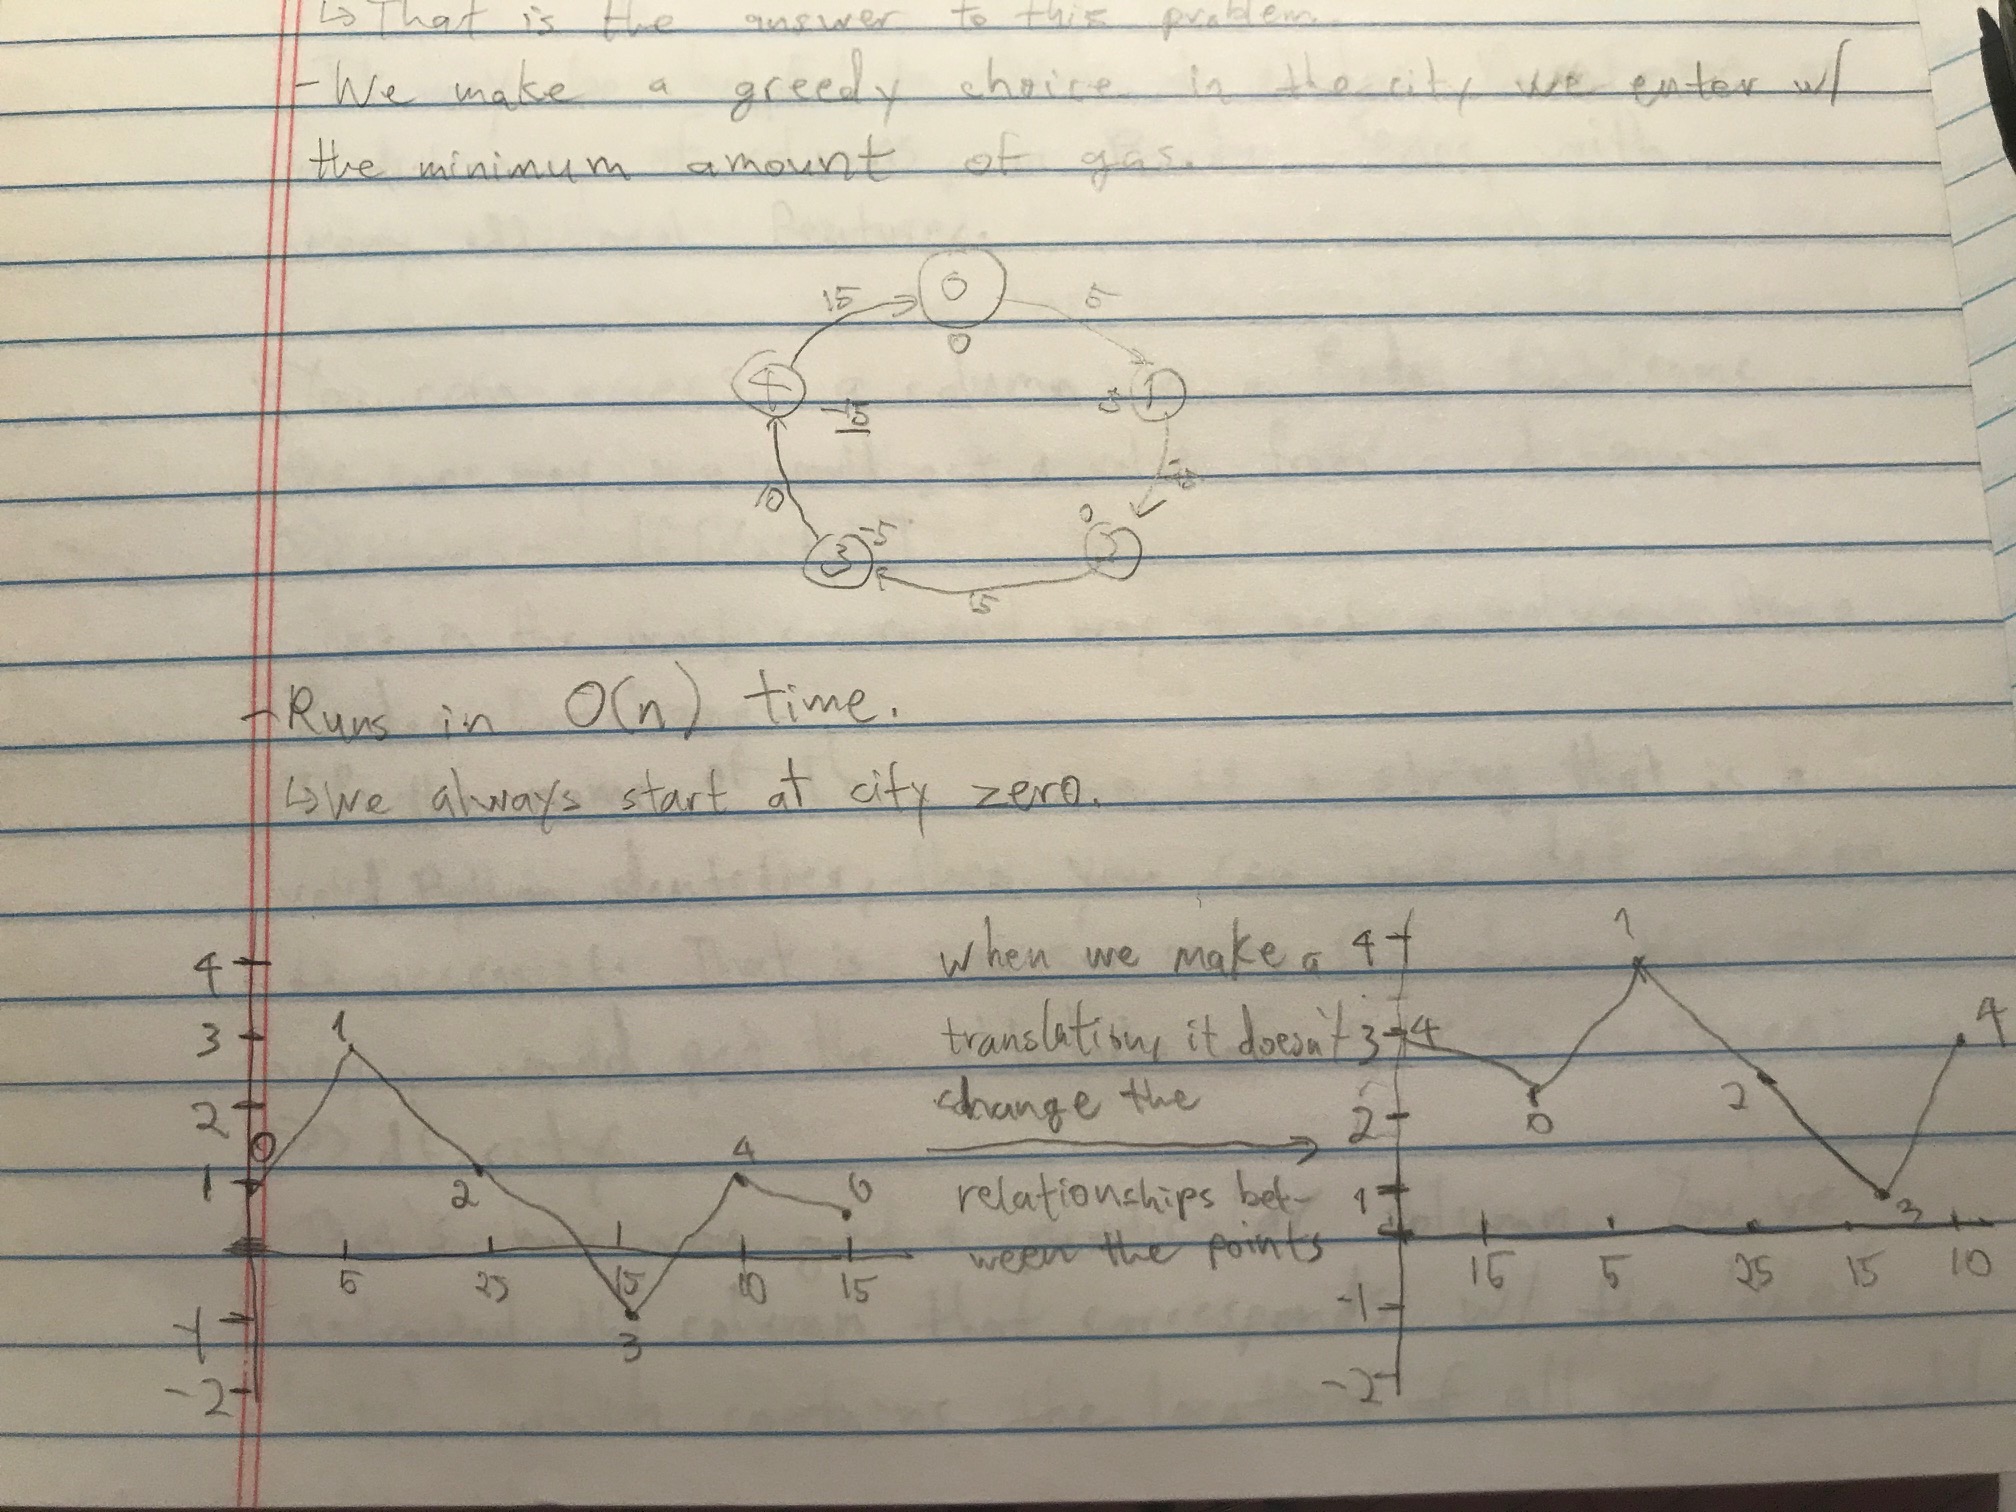 ↳ That is the answer to this problem.
- We make a greedy choice in the city we enter w/
the minimum amount of gas.
0
15
5
0
4
1
5
-15
10
-5
0
3
2
15
- Runs in O(n) time.
↳ We always start at city zero.
4
3
2
1
-1
-2
0
1
2
3
4
0
5
25
15
10
15
when we make a
translation, it doesn't
change the
relationships bet-
ween the points
4
3
2
1
-1
-2
4
0
1
2
3
4
15
5
25
15
10